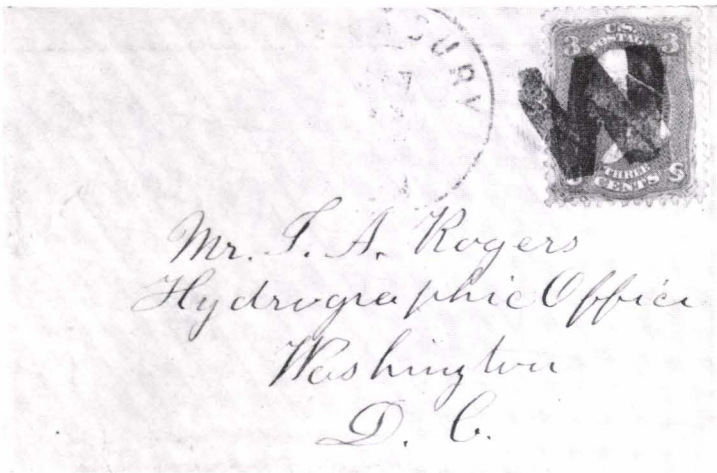 U.S.
POSTAGE
3 3
THREE
CENTS
Mr. T. A. Rogers
Hydrographic Office
Washington
D. C.